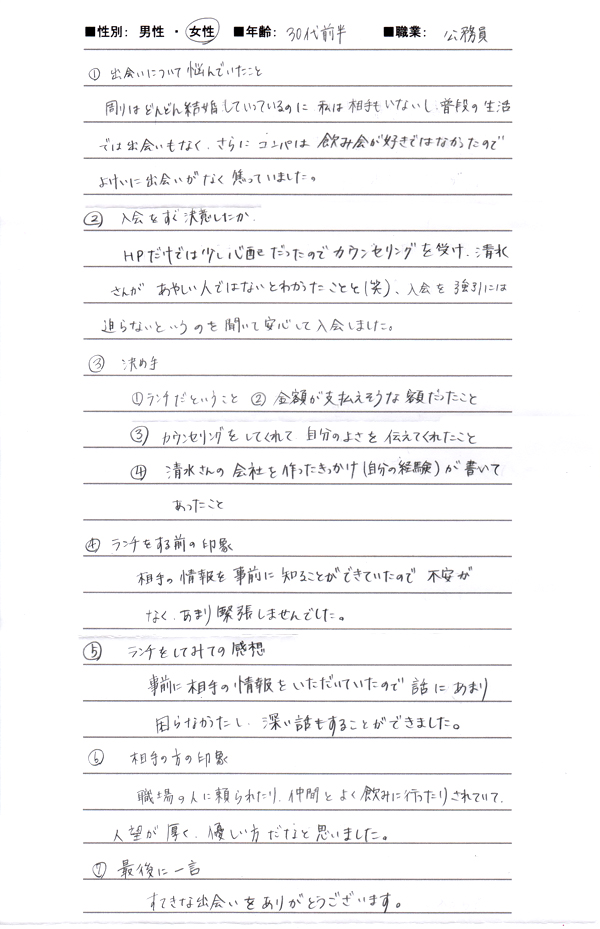 ■性別： 男性 ・ 女性 ■年齢： 30代前半 ■職業： 公務員
① 出会いについて悩んでいたこと
周りはどんどん結婚していっているのに 私は相手もいないし、普段の生活
では出会いもなく、さらに コンパは 飲み会が好きではなかったので
よけいに出会いがなく 焦っていました。
② 入会をすぐ決意したか
HPだけでは少し心配だったので カウンセリングを受け、清水
さんが あやしい人ではないとわかったことと(笑)、入会を 強引には
迫らないというのを聞いて安心して入会しました。
③ 決め手
①ランチだということ ② 金額が支払えそうな額だったこと
③ カウンセリングをしてくれて 自分のよさを 伝えてくれたこと
④ 清水さんの 会社を作ったきっかけ(自分の経験)が書いて
あったこと
④ ランチをする前の印象
相手の情報を事前に 知ることができていたので 不安が
なく、あまり緊張しませんでした。
⑤ ランチをしてみての感想
事前に相手の情報をいただいていたので 話に あまり
困らなかったし、深い話もすることができました。
⑥ 相手の方の印象
職場の人に頼られたり、仲間と よく飲みに行ったりされていて、
人望が厚く、優しい方だなと思いました。
⑦ 最後に一言
すてきな出会いをありがとうございます。